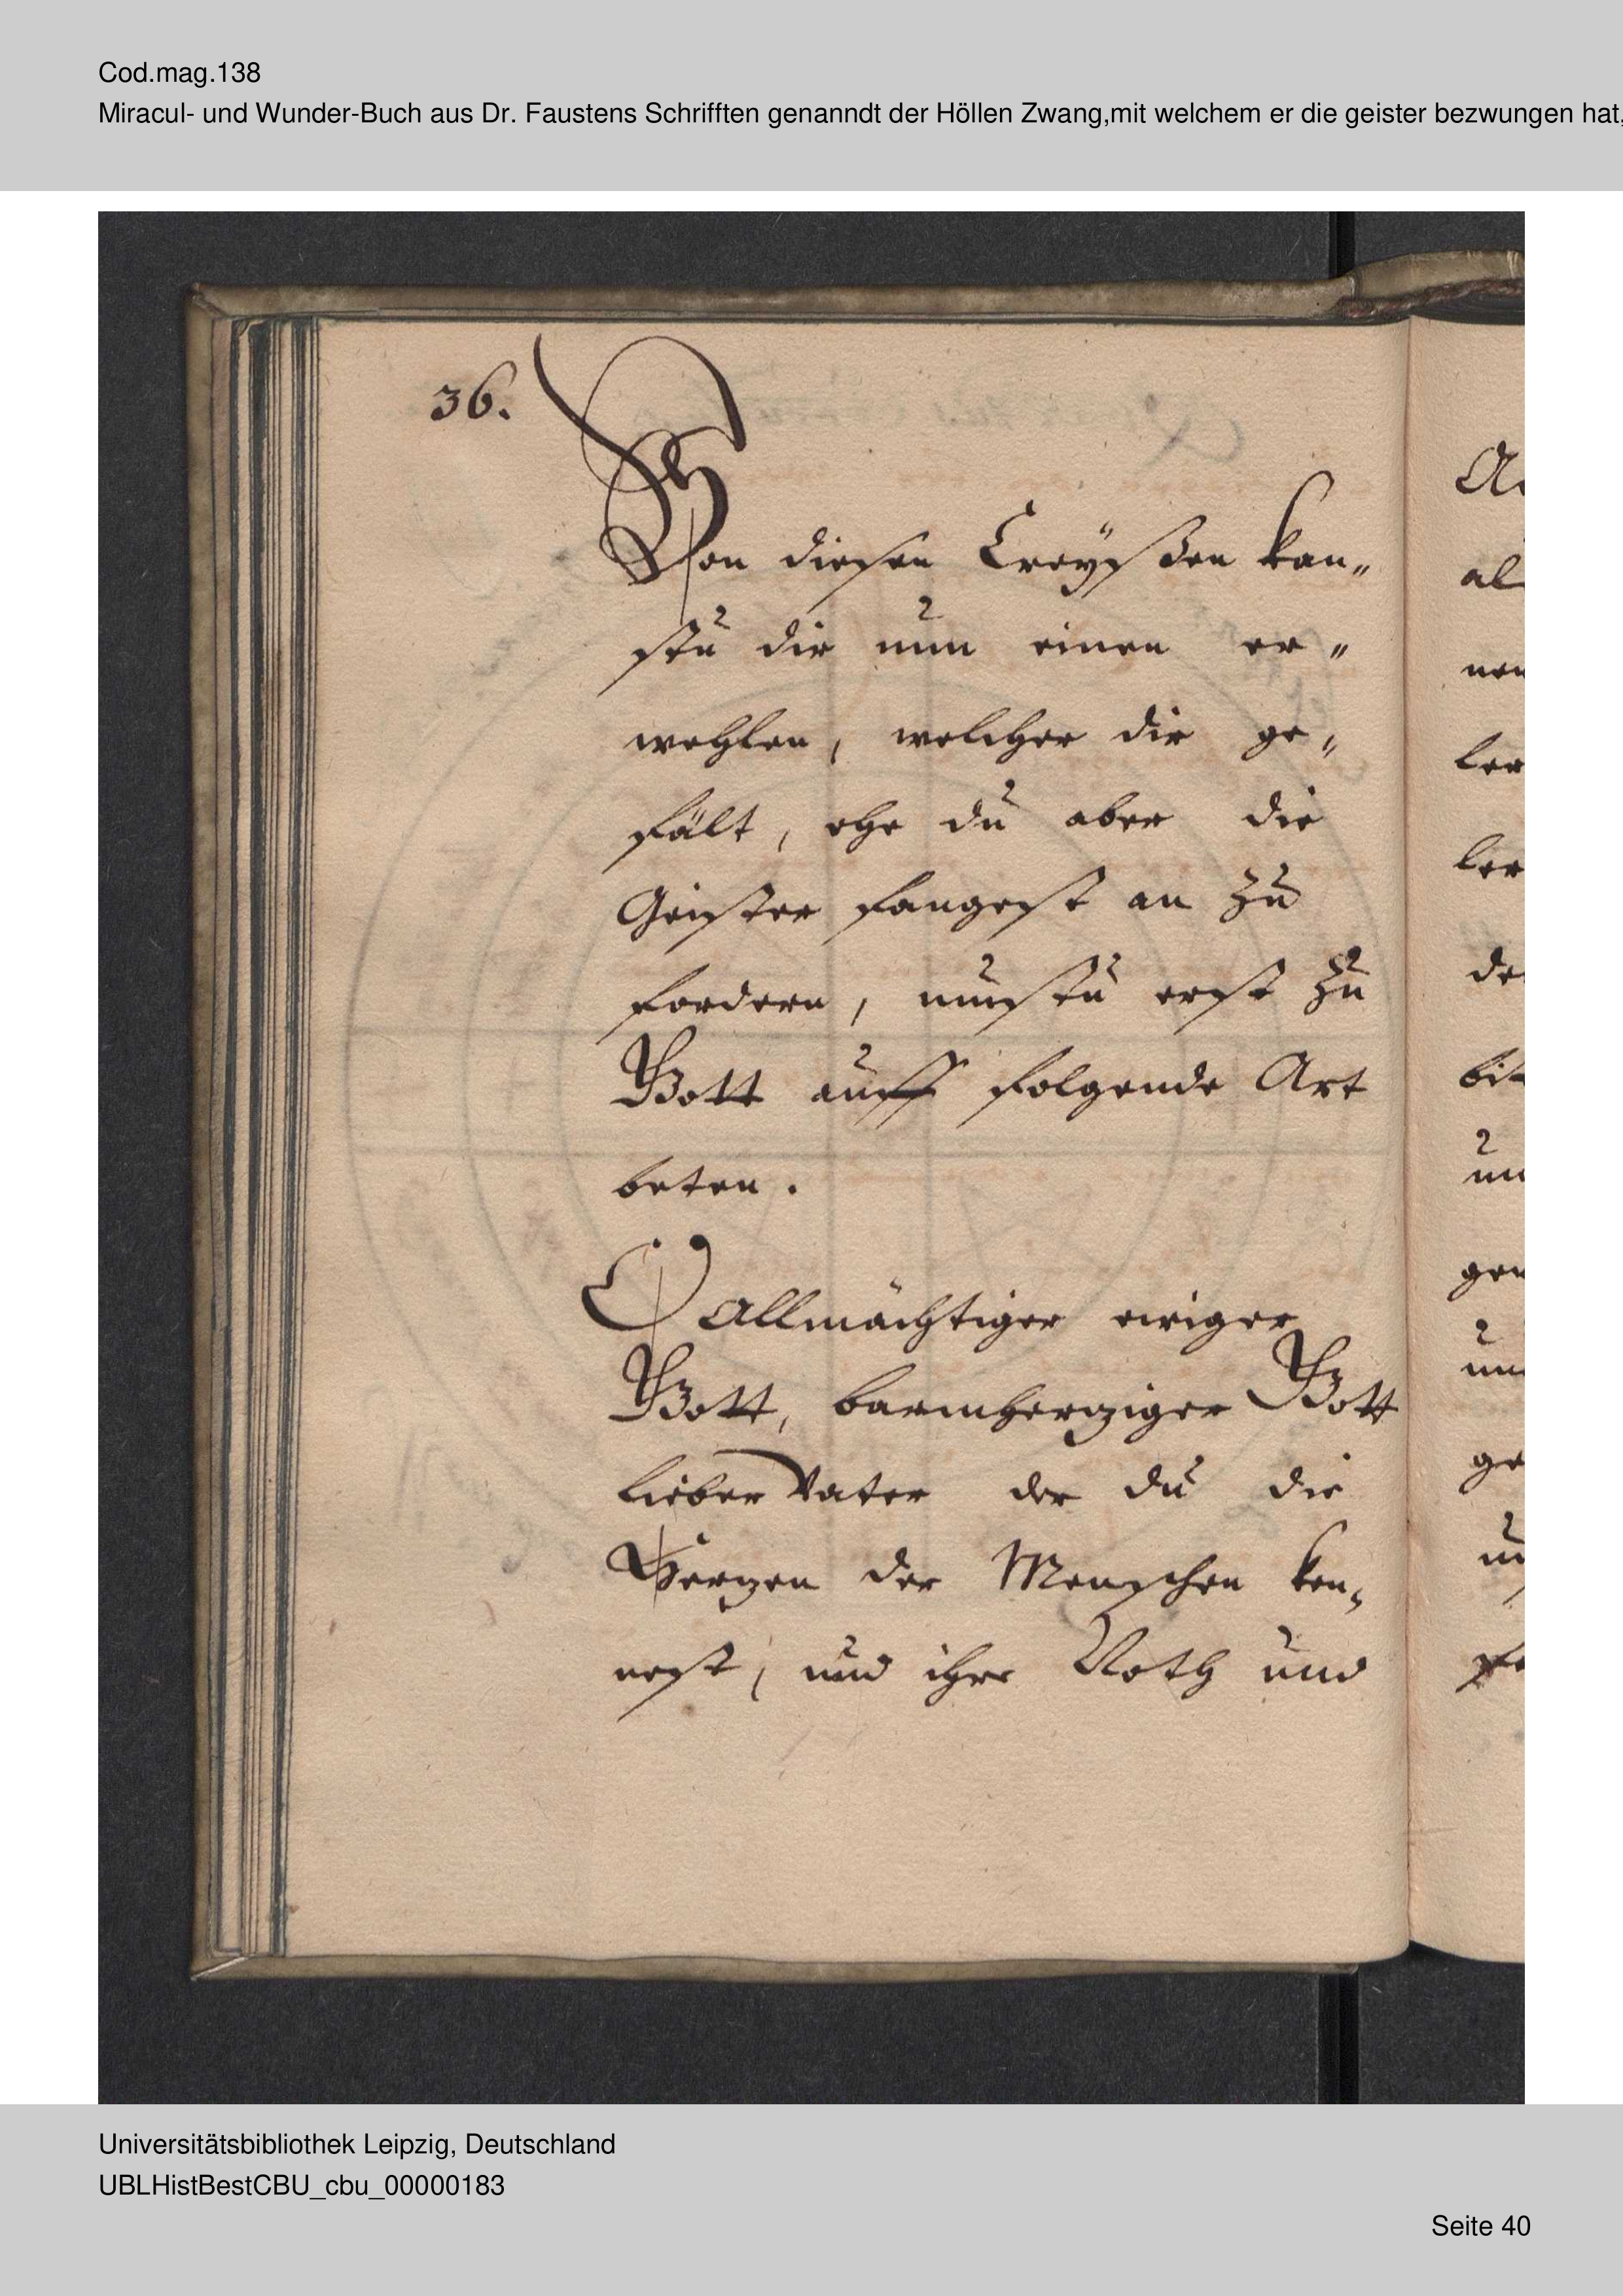 Cod.mag.138
Miracul- und Wunder-Buch aus Dr. Faustens Schrifften genanndt der Höllen Zwang,mit welchem er die geister bezwungen hat,
36.
Von diesen Creyßen kan„
stu dir nun einen er„
wehlen, welcher dir ge„
fält, ehe du aber die
Geister fangest an zu
fordern, mustu erst zu
Gott auff folgende Art
beten.
O Allmächtiger ewiger
Gott, barmherziger Gott
lieber Vater der du die
Herzen der Menschen ken„
nest, und ihre Noth und
Universitätsbibliothek Leipzig, Deutschland
UBLHistBestCBU_cbu_00000183
Seite 40